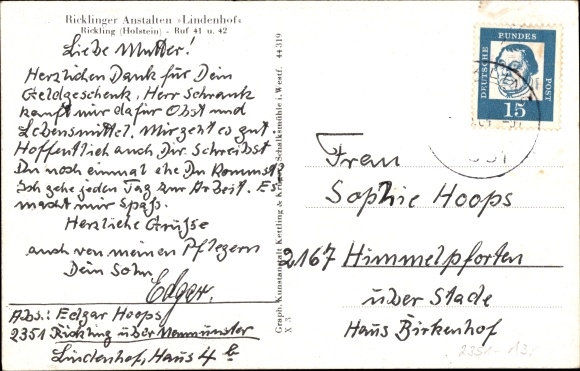 Ricklinger Anstalten »Lindenhof«
Rickling (Holstein) - Ruf 41 u. 42
Liebe Mutter!
Herzlichen Dank für Dein
Geldgeschenk. Herr Schrank
kauft mir dafür Obst und
Lebensmittel. Mir geht es gut
Hoffentlich auch Dir. Schreibst
Du noch einmal ehe Du kommst
Ich gehe jeden Tag zur Arbeit. Es
macht mir Spaß.
Herzliche Grüße
auch von meinen Pflegern
Dein Sohn
Edgar.
Abs.: Edgar Hoops
2351 Rickling über Neumünster
Lindenhof, Haus 4 b
Graph. Kunstanstalt Kettling & Krüger, Schalksmühle i. Westf. 44 319
X 3
DEUTSCHE BUNDESPOST
15
Frau
Sophie Hoops
2167 Himmelpforten
über Stade
Haus Birkenhof
2351-13.